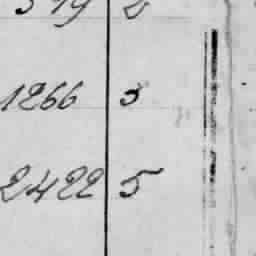 1266 3
2422 5